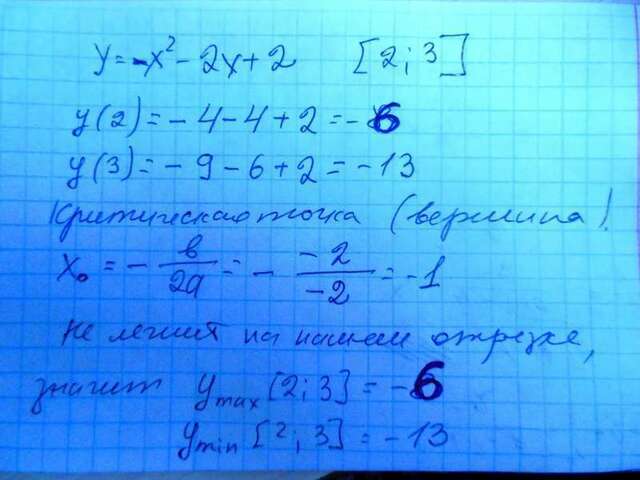 y = -x² - 2x + 2 [2; 3]
y(2) = -4 - 4 + 2 = -6
y(3) = -9 - 6 + 2 = -13
Критическая точка (вершина)
x₀ = - в/2a = - -2/-2 = -1
не лежит на нашем отрезке,
значит y max [2; 3] = -6
y min [2; 3] = -13